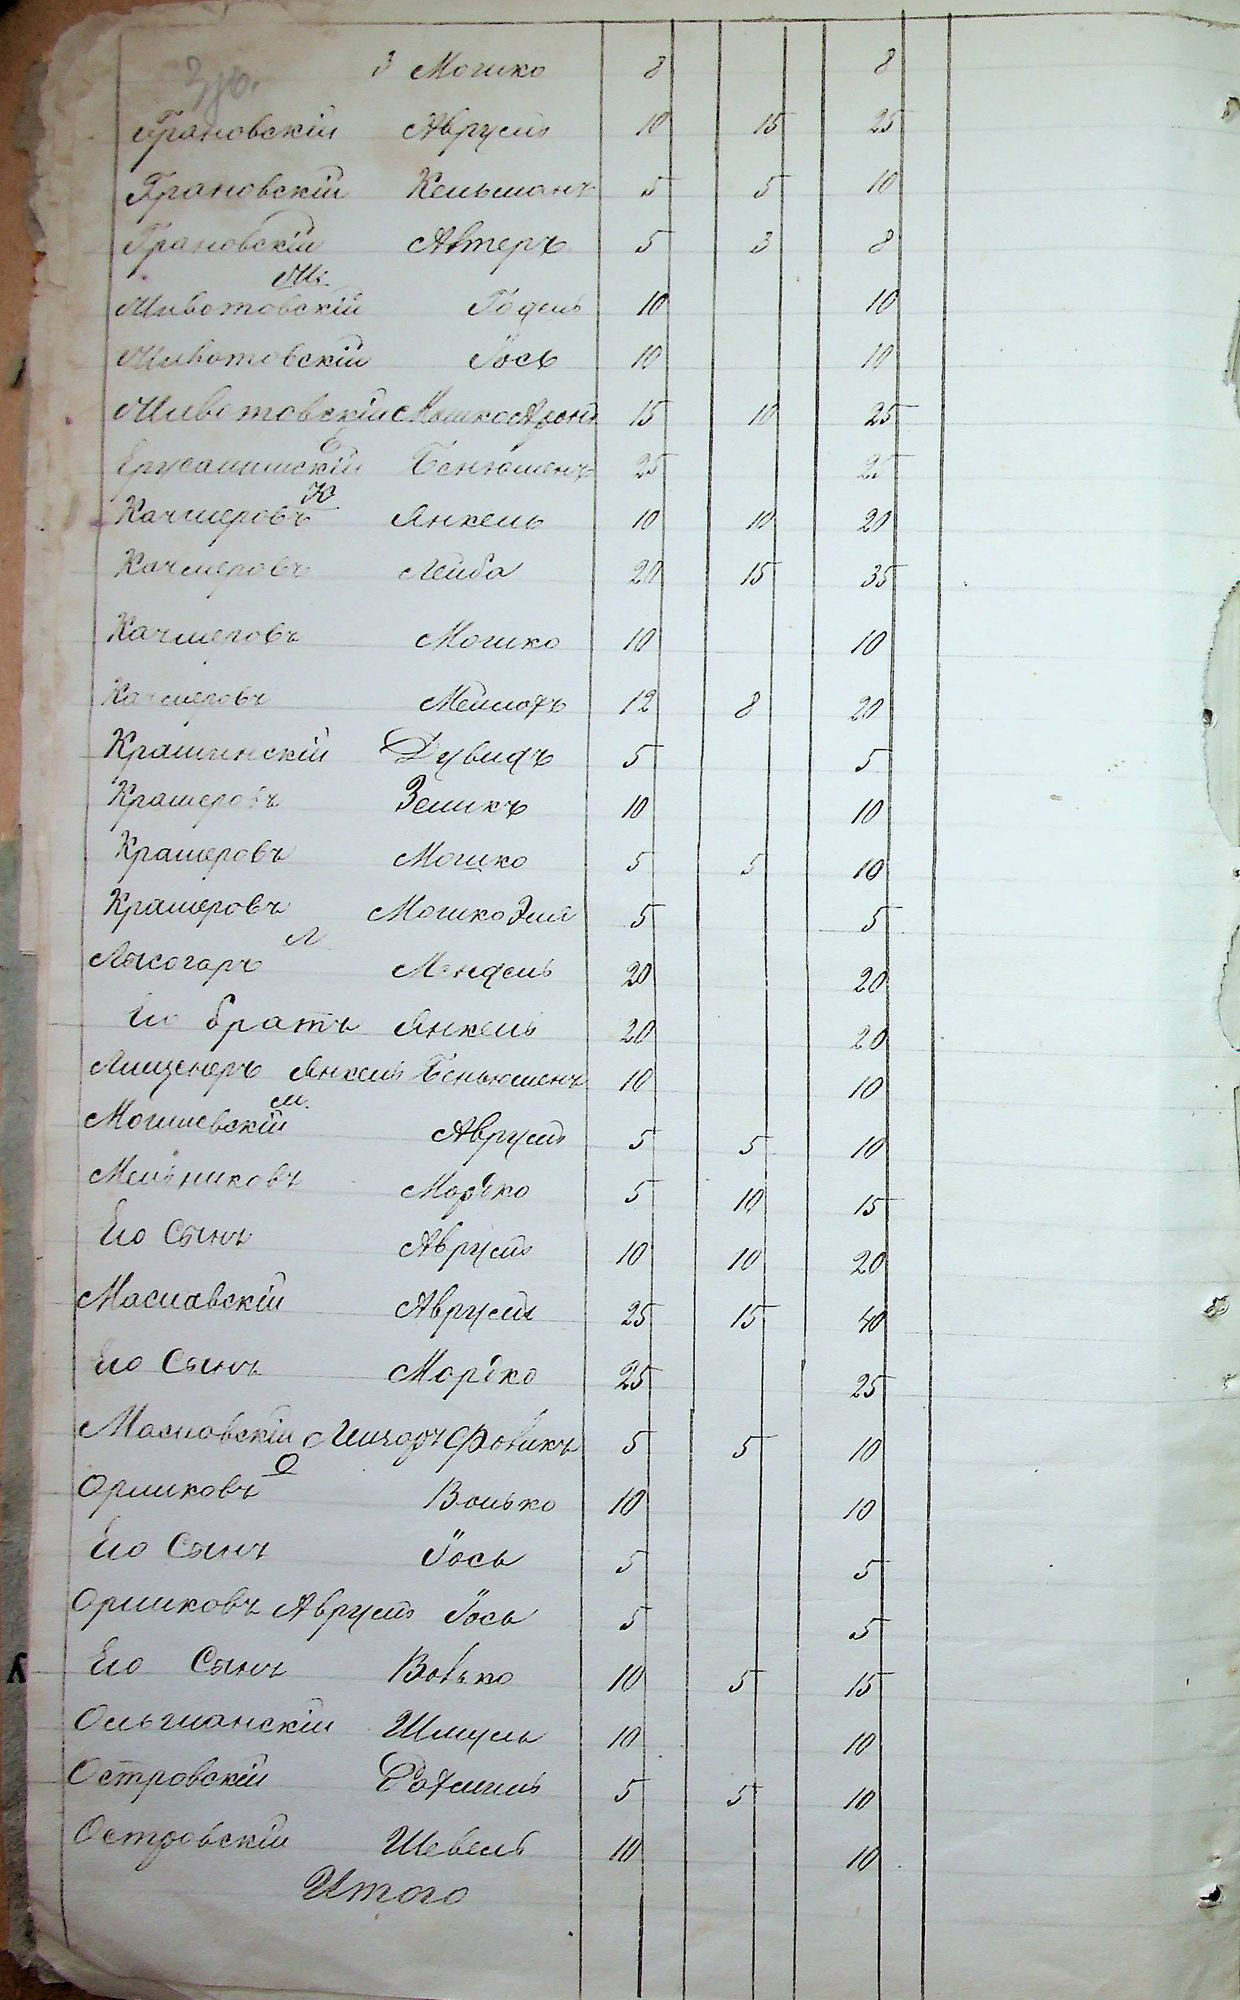 3 Мошко 8 8
Грановскій Аврумъ 10 15 25
Грановскій Кельманъ 5 5 10
Грановскій Автеръ 5 3 8
Животовскій Годель 10 10
Животовскій Іось 10 10
Животовскій Мошко Аронъ 15 10 25
Е
Ерусалимскій Беніоменъ 25 25
К
Качмеровъ Янкель 10 10 20
Качмеровъ Лейба 20 15 35
Качмеровъ Мошко 10 10
Качмеровъ Мейлохъ 12 8 20
Крашинскій Дувидъ 5 5
Крамеровъ Зеликъ 10 10
Крамеровъ Мошко 5 5 10
Крамеровъ Мошко Эля 5 5
Л
Лысогоръ Мендель 20 20
Его братъ Янкель 20 20
Янкель Беньюменъ 10 10
М
Могилевскій Аврумъ 5 5 10
Мельниковъ Морѣко 5 10 15
Его Сынъ Аврумъ 10 10 20
Маславскій Аврумъ 25 15 40
Его Сынъ Морѣко 25 25
Масловскій Фовикъ 5 5 10
О
Орликовъ Волько 10 10
Его Сынъ Іось 5 5
Орликовъ Аврумъ Іось 5 5
Его Сынъ Волько 10 5 15
Ольшанскій Шмуль 10 10
Островскій Рахмиль 5 5 10
Островскій Шевель 10 10
Итого